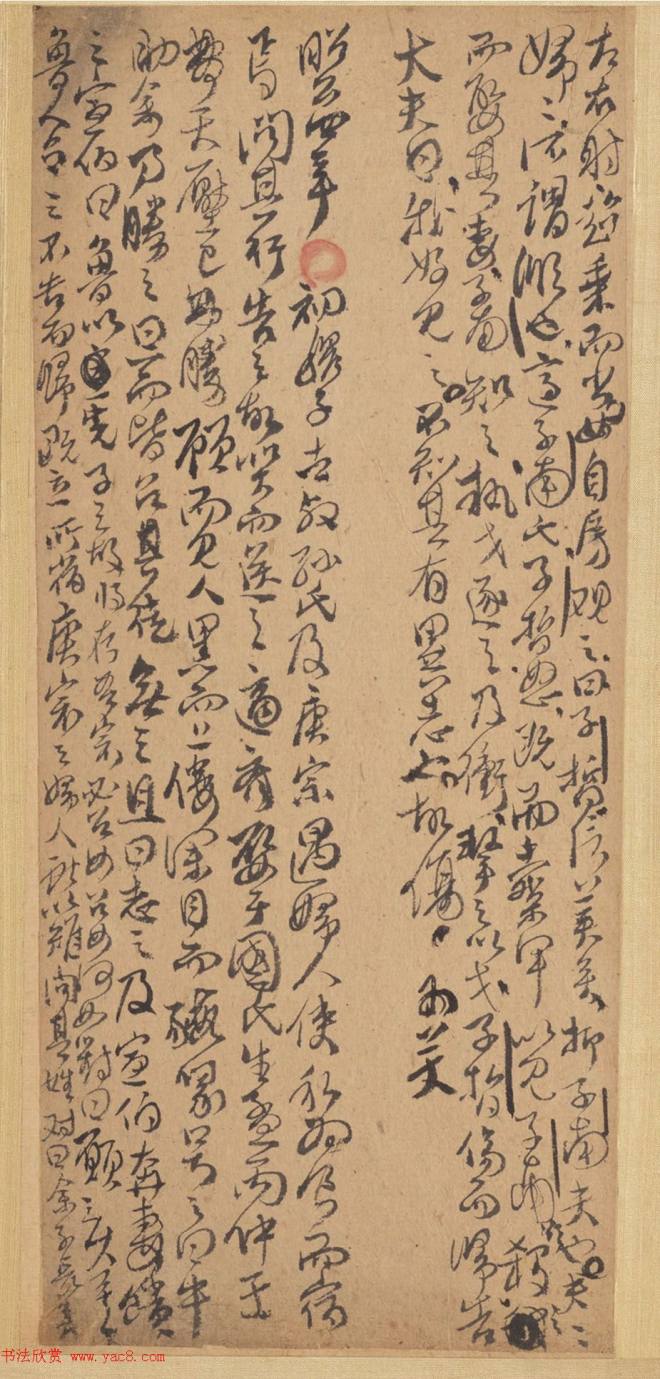 左右射超乘而出女自房觀之曰子晳信美矣抑子南夫也夫〻
婦〻所謂順也適子南氏子晳怒既而櫜甲以見子南欲殺之
而娶其妻子南知之執戈逐之及衝擊之以戈子晳傷而歸告
大夫曰我好見之不知其有異志也故傷
昭公四年 初穆子去叔孫氏及庚宗遇婦人使私為食而宿
焉問其行告之故哭而送之適齊娶于國氏生孟丙仲壬
夢天壓己弗勝顧而見人黑而上僂深目而豭喙號之曰牛
助余乃勝之旦而皆召其徒無之且曰志之及宣伯奔齊饋
之宣伯曰魯以先子之故將存吾宗必召女召女何如對曰願之久矣
魯人召之不告而歸既立所宿庚宗之婦人獻以雉問其姓对曰余子長矣
书法欣赏 www.yac8.com